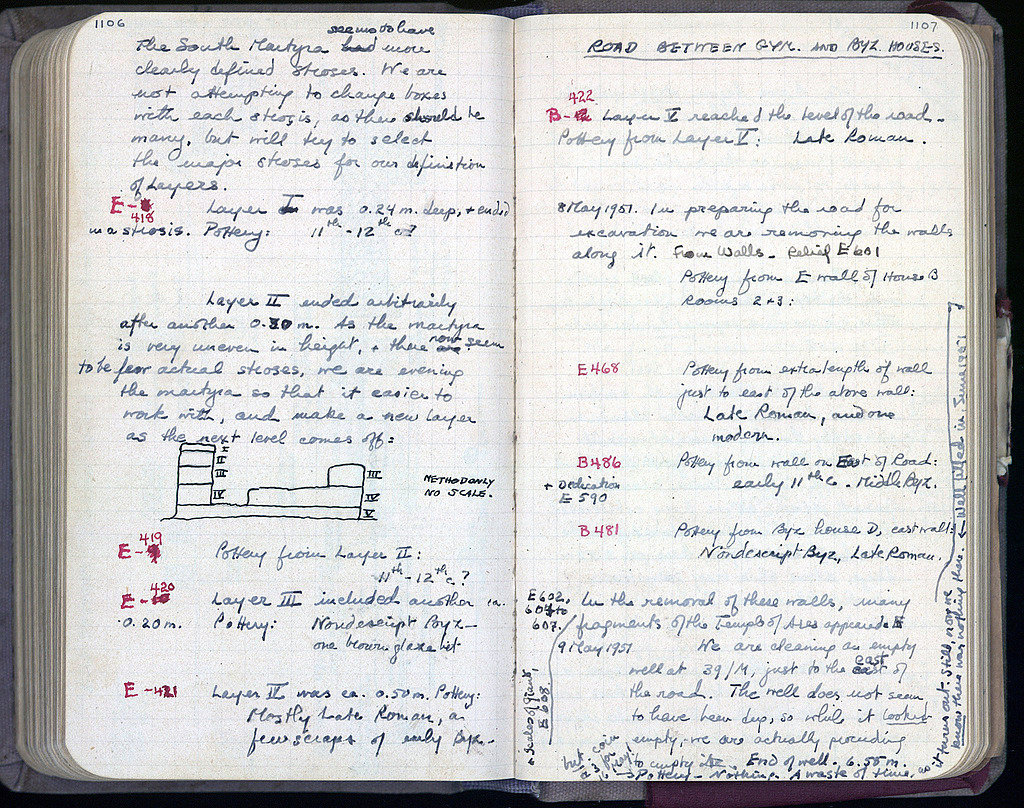 1106
seems to have
The South Martyra had more
clearly defined stroses. We are
not attempting to change boxes
with each strosis, as there should be
many, but will try to select
the major stroses for our definition
of Layers.
E-
418
Layer I was 0.24 m. deep, + ended
in a strosis. Pottery: 11th - 12th c?
Layer II ended arbitrarily
after another 0.30 m. As the martyra
is very uneven in height, + there now seem
to be few actual stroses, we are evening
the martyra so that it easier to
work with, and make a new layer
as the next level comes off:
I
II
III
IV
III
IV
V
METHOD ONLY
NO SCALE.
419
E-
Pottery from Layer II:
11th - 12th c?
420
E-
Layer III included another ca.
0.20 m. Pottery: Nondescript Byz -
one brown glaze bit
E-421 Layer IV was ca. 0.50 m. Pottery:
Mostly Late Roman, a
few scraps of early Byz.
1107
ROAD BETWEEN GYM. AND BYZ. HOUSES.
422
B- Layer V reached the level of the road.
Pottery from Layer V: Late Roman.
8 May 1951. In preparing the road for
excavation we are removing the walls
along it. From Walls - Relief E 601
Pottery from E wall of House B
Rooms 2 + 3:
E 468 Pottery from extra lengths of wall
just to east of the above wall:
Late Roman, and one
modern.
B 486 Pottery from wall on East of Road:
early 11th c. Middle Byz.
+ Dedication
E 590
B 481 Pottery from Byz house D, east wall:
Nondescript Byz, Late Roman.
E 602,
604 to
607.
In the removal of these walls, many
fragments of the Temple of Ares appeared.
9 May 1951 We are cleaning an empty
well at 39/M, just to the east of
the road. The well does not seem
to have been deep, so while it looked
empty, we are actually proceeding
to empty it. End of well, 6.55 m.
Pottery - Nothing. A waste of time, as
it turns out. Still, now we
know there was nothing there. ← Well filled in, June 1951
← Scales of giant,
E 608
but
coin